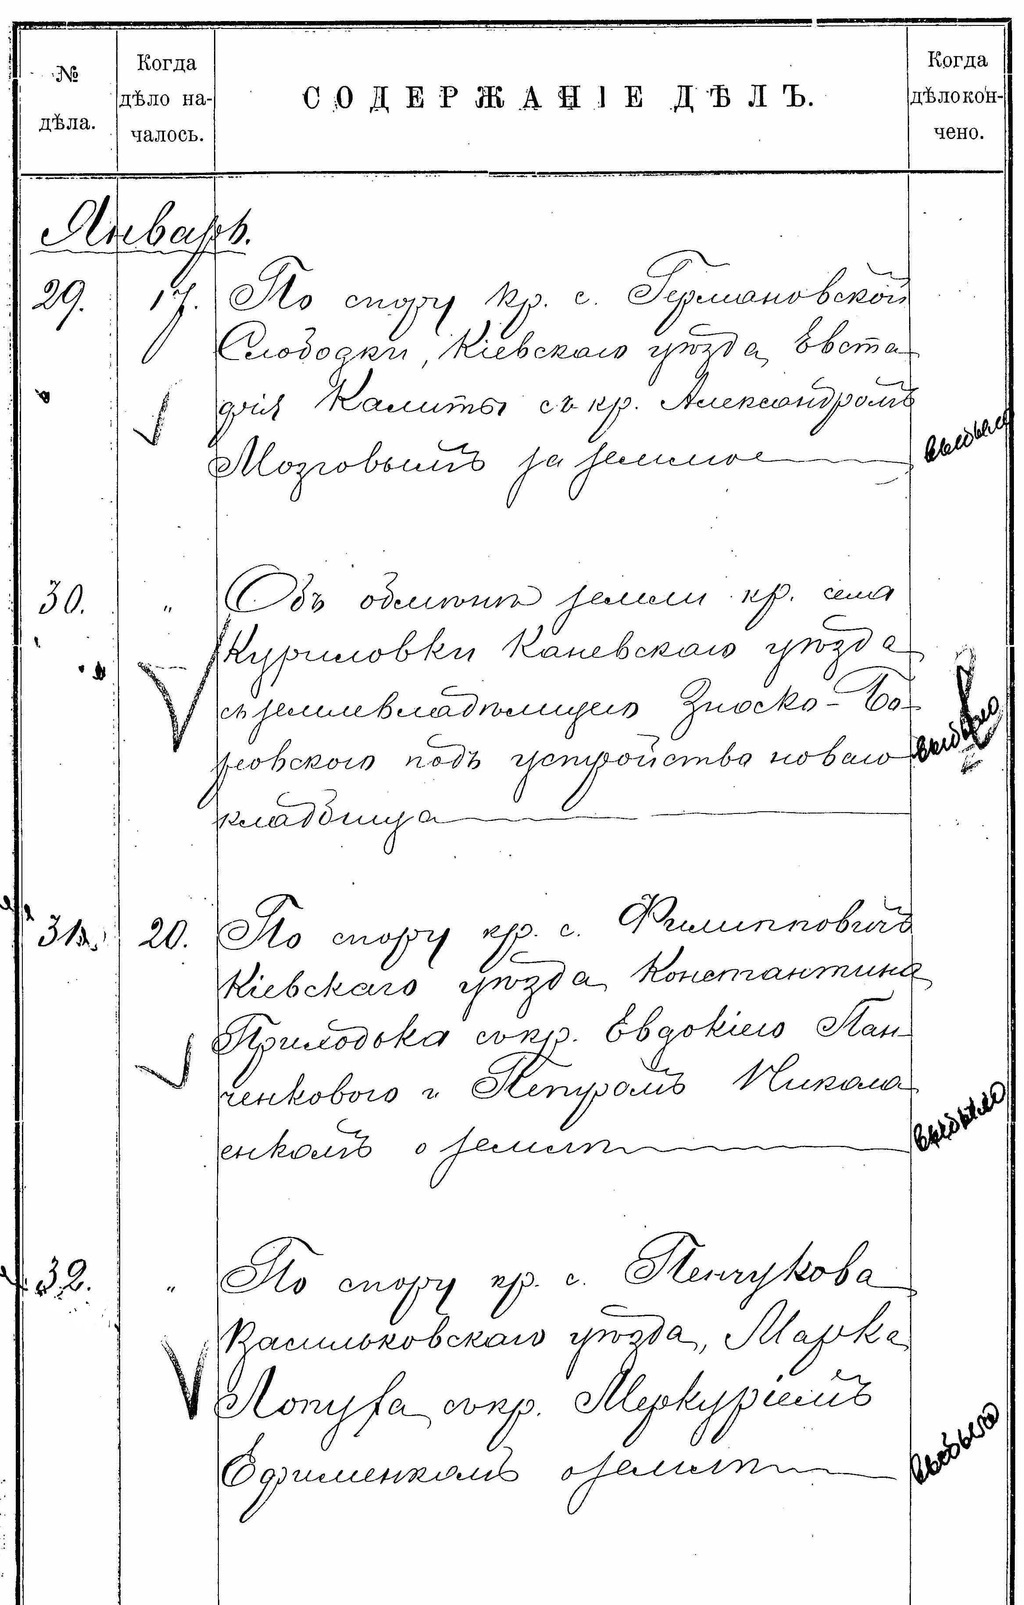 № дѣла.
Когда дѣло началось.
СОДЕРЖАНІЕ ДѢЛЪ.
Когда дѣло кончено.
Январь.
29. 17. По спору кр. с. Германовской
Слободки, Кіевскаго уѣзда, Евста-
фія Калиты съ кр. Александромъ
Мозговымъ за землю
выбыло
30. " Объ обмѣнѣ земли кр. села
Куриловки Каневскаго уѣзда
съ землевладѣлицею Зноско-Бо-
ровского подъ устройства новаго
кладбища
выбыло
31. 20. По спору кр. с. Филипповичъ
Кіевскаго уѣзда, Константина
Приходька съ кр. Евдокіею Пан-
ченкового и Петромъ Никола
енкомъ о землѣ
выбыло
32. " По спору кр. с. Пенчукова
Васильковскаго уѣзда, Марка
съ кр. Меркуріемъ
Ефименкомъ о землѣ
выбыло